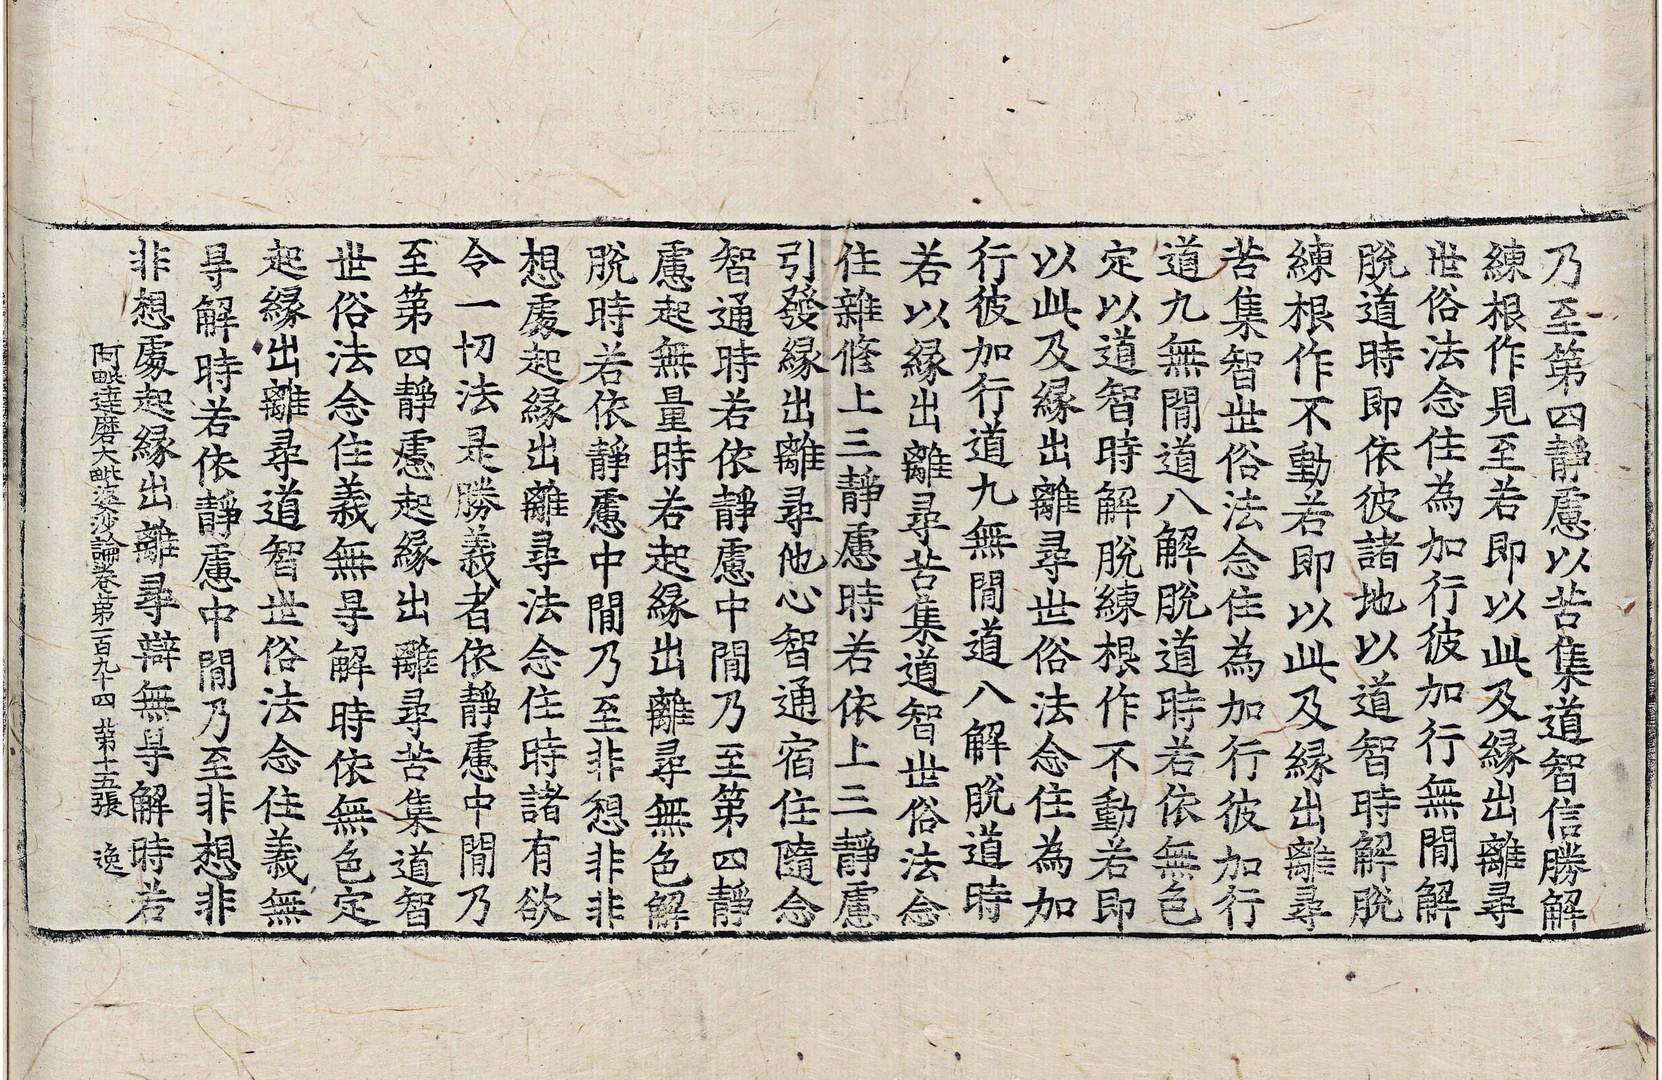 乃至第四靜慮以苦集道智信勝解
練根作見至若即以此及緣出離尋
世俗法念住為加行彼加行無間解
脫道時即依彼諸地以道智時解脫
練根作不動若即以此及緣出離尋
苦集智世俗法念住為加行彼加行
道九無間道八解脫道時若依無色
定以道智時解脫練根作不動若即
以此及緣出離尋世俗法念住為加
行彼加行道九無間道八解脫道時
若以緣出離尋苦集道智世俗法念
住雜修上三靜慮時若依上三靜慮
引發緣出離尋他心智通宿住隨念
智通時若依靜慮中間乃至第四靜
慮起無量時若起緣出離尋無色解
脫時若依靜慮中間乃至非想非非
想處起緣出離尋法念住時諸有欲
令一切法是勝義者依靜慮中間乃
至第四靜慮起緣出離尋苦集道智
世俗法念住義無㝵解時依無色定
起緣出離尋道智世俗法念住義無
㝵解時若依靜慮中間乃至非想非
非想處起緣出離尋辯無㝵解時若
阿毗達磨大毗婆沙論卷第一百九十四 第十五張 逸